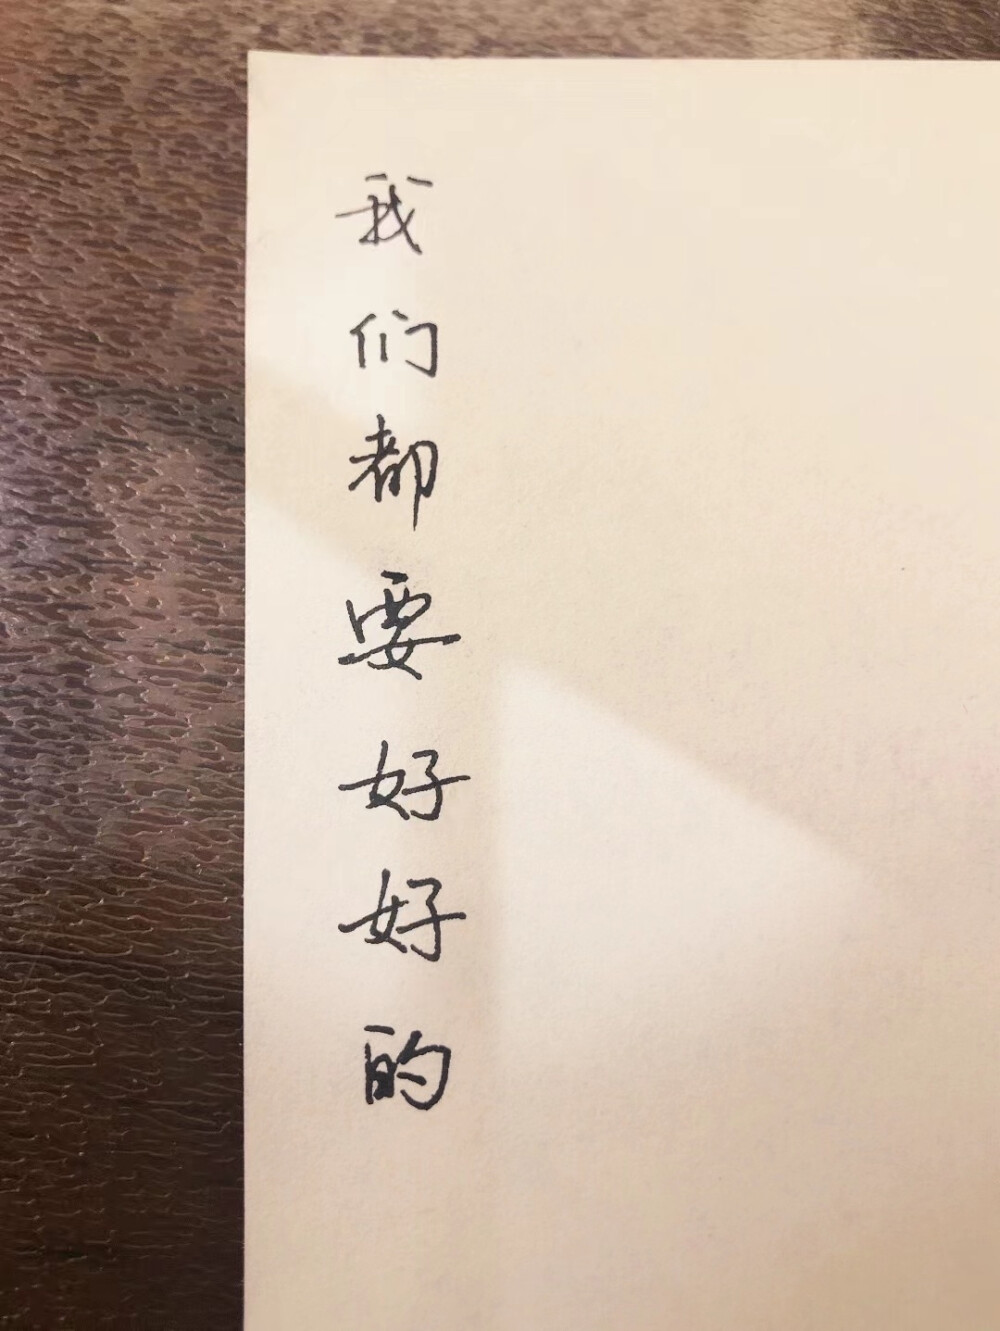 我们都要好好的